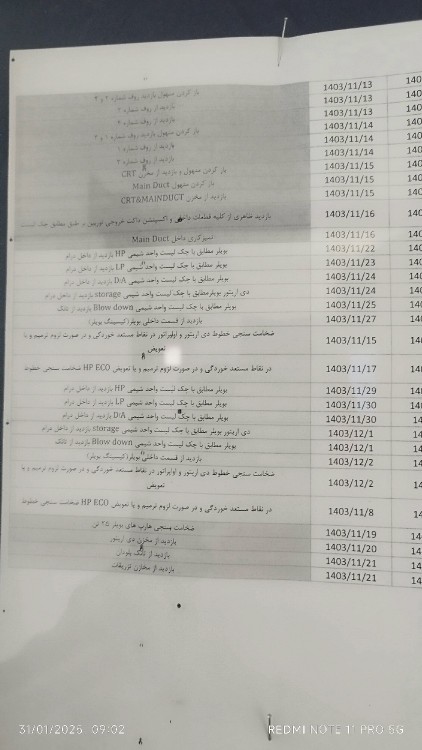 باز کردن منهول بازدید از روف شماره ۳ و ۴ 1403/11/13
بازدید از روف شماره ۳ 1403/11/13
بازدید از روف شماره ۴ 1403/11/13
باز کردن منهول بازدید روف شماره ۱ و ۲ 1403/11/14
بازدید از روف شماره ۱ 1403/11/14
بازدید از روف شماره ۲ 1403/11/14
باز کردن منهول و بازدید از مخزن CRT 1403/11/15
باز کردن منهول Main Duct 1403/11/15
بازدید از مخزن CRT&MAINDUCT 1403/11/15
بازدید ظاهری از کلیه قطعات داخلی و اکسپنشن داکت خروجی توربین بر طبق مطابق چک لیست 1403/11/16
تمیزکاری داخل Main Duct 1403/11/16
بویلر مطابق با چک لیست واحد شیمی HP بازدید از داخل درام 1403/11/22
بویلر مطابق با چک لیست واحد شیمی LP بازدید از داخل درام 1403/11/23
بویلر مطابق با چک لیست واحد شیمی D/A بازدید از داخل درام 1403/11/24
دی اریتور بویلرمطابق با چک لیست واحد شیمی storage بازدید از داخل درام 1403/11/24
بویلر مطابق با چک لیست واحد شیمی Blow down بازدید از تانک 1403/11/25
بازدید از قسمت داخلی بویلر(کیسینگ بویلر) 1403/11/27
ضخامت سنجی خطوط دی اریتور و اواپراتور در نقاط مستعد خوردگی و در صورت لزوم ترمیم و یا
تعویض 1403/11/15
در نقاط مستعد خوردگی و در صورت لزوم ترمیم و یا تعویض HP ECO ضخامت سنجی خطوط 1403/11/17
بویلر مطابق با چک لیست واحد شیمی HP بازدید از داخل درام 1403/11/29
بویلر مطابق با چک لیست واحد شیمی LP بازدید از داخل درام 1403/11/30
بویلر مطابق با چک لیست واحد شیمی D/A بازدید از داخل درام 1403/11/30
دی اریتور بویلر مطابق با چک لیست واحد شیمی storage بازدید از داخل درام 1403/12/1
بویلر مطابق با چک لیست واحد شیمی Blow down بازدید از تانک 1403/12/1
بازدید از قسمت داخلی بویلر(کیسینگ بویلر) 1403/12/2
ضخامت سنجی خطوط دی اریتور و اواپراتور در نقاط مستعد خوردگی و در صورت لزوم ترمیم و یا
تعویض 1403/12/2
در نقاط مستعد خوردگی و در صورت لزوم ترمیم و یا تعویض HP ECO ضخامت سنجی خطوط 1403/11/8
ضخامت سنجی هارپ های بویلر ۲۵ تن 1403/11/19
بازدید از مخزن دی اریتور 1403/11/20
بازدید از تانک بلودان 1403/11/21
بازدید از مخازن تزریقات 1403/11/21
31/01/2026 09:02
REDMI NOTE 11 PRO 5G